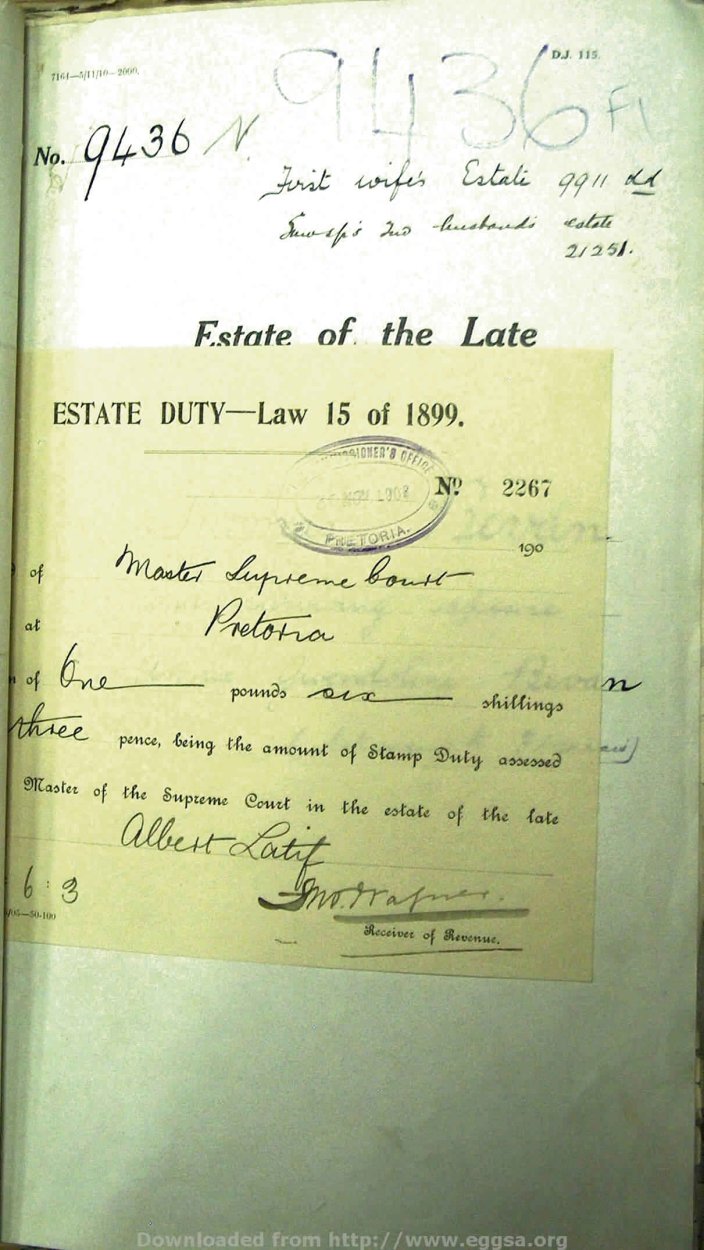 7164—5/11/10—2000.
D.J. 115.
9436 F1
No. 9436 N
First wife's Estate 9911
2nd husband's estate
21251.
Estate of the Late
ESTATE DUTY—Law 15 of 1899.
OFFICE
PRETORIA.
No 2267
190
of Master Supreme Court
at Pretoria
of One pounds six shillings
three pence, being the amount of Stamp Duty assessed
Master of the Supreme Court in the estate of the late
Albert Latif
6 : 3
Receiver of Revenue.
Downloaded from http://www.eggsa.org